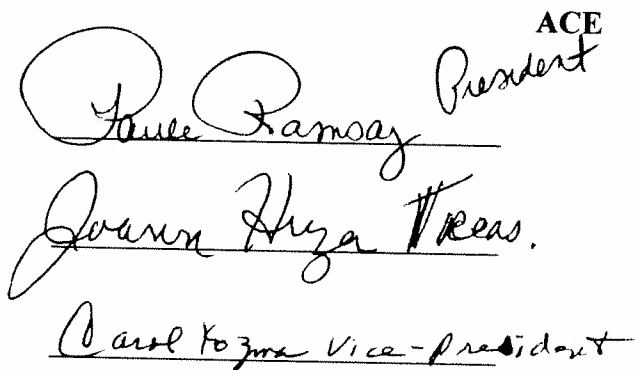 ACE
Ramsay President
Joann Huza Treas.
Carol Kozma Vice-president